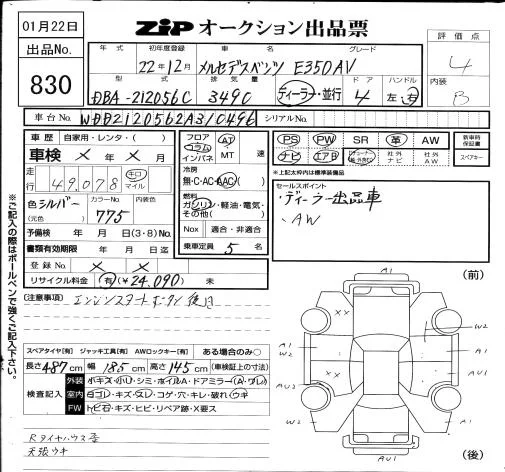 01月22日
ZIP オークション出品票
出品No.
830
評価点
4
内装
B
年式 初年度登録 車名 グレード
22年12月 メルセデスベンツ E350AV
型式 排気量 ドア ハンドル
DBA-212056C 3490 ディーラー・並行 4 左・右
車台No. WDD2120562A310496 シリアルNo.
車歴 自家用・レンタ・( )
車検 × 年 × 月
走行 49,078 キロ マイル
色 シルバー (元色) カラーNo. 775 内装色
予備検 年 月 日(3・8)No.
書類有効期限 年 月 日迄
登録No. × ×
リサイクル料金 有(¥24,090) 未
フロア コラム インパネ AT MT 速
冷房 無・C・AC・AAC
燃料 ガソリン・軽油・電気・その他( )
Nox 適合・非適合
乗車定員 5 名
PS PW SR 革 AW
ナビ エアB 社外ナビ 社外AW
新車時保証書
スペアキー
*上記太枠内は標準装備品
セールスポイント
・ディーラー出品車
・AW
(注意事項) エンジンスタートボタン後日
スペアタイヤ[有] ジャッキ工具[有] AWロックキー[有] ある場合のみ○
長さ 487cm 幅 185cm 高さ 145cm (車検証上の寸法)
検査記入
外装 小キズ・小U・シミ・ホイルA・ドアミラー(A・ワレ)
室内 ヨゴレ・キズ・スレ・コゲ・穴・キレ・破れ・ウキ
FW トビ石・キズ・ヒビ・リペア跡・X要ス
天張ウキ
※ご記入の際はボールペンで強くご記入下さい。
(前)
A1
××
W2
A1
W2
AU2
××
A1
AU1
W2
A1
AU1
(後)